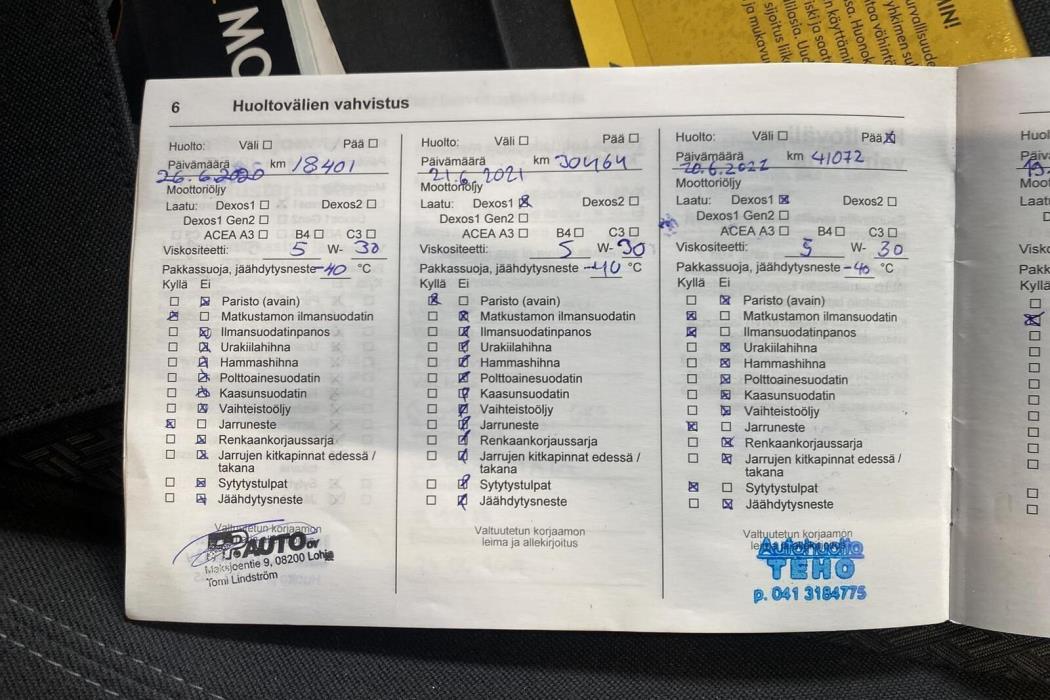 MO
MIN!
6 Huoltovälien vahvistus
Huolto: Väli ☐ Pää ☐
Päivämäärä km 18401
26.6.2020
Moottoriöljy
Laatu: Dexos1 ☐ Dexos2 ☐
Dexos1 Gen2 ☐
ACEA A3 ☐ B4 ☐ C3 ☐
Viskositeetti: 5 W- 30
Pakkassuoja, jäähdytysneste -40 °C
Kyllä Ei
☐ ☒ Paristo (avain)
☒ ☐ Matkustamon ilmansuodatin
☐ ☒ Ilmansuodatinpanos
☐ ☒ Urakiilahihna
☐ ☒ Hammashihna
☐ ☒ Polttoainesuodatin
☐ ☒ Kaasunsuodatin
☐ ☒ Vaihteistoöljy
☒ ☐ Jarruneste
☐ ☒ Renkaankorjaussarja
☐ ☒ Jarrujen kitkapinnat edessä /
takana
☐ ☒ Sytytystulpat
☐ ☒ Jäähdytysneste
Valtuutetun korjaamon
AUTO OY
Maksjoentie 9, 08200 Lohja
Tomi Lindström
Huolto: Väli ☐ Pää ☐
Päivämäärä km 30464
21.6.2021
Moottoriöljy
Laatu: Dexos1 ☒ Dexos2 ☐
Dexos1 Gen2 ☐
ACEA A3 ☐ B4 ☐ C3 ☐
Viskositeetti: 5 W- 30
Pakkassuoja, jäähdytysneste -40 °C
Kyllä Ei
☒ ☐ Paristo (avain)
☐ ☒ Matkustamon ilmansuodatin
☐ ☒ Ilmansuodatinpanos
☐ ☒ Urakiilahihna
☐ ☒ Hammashihna
☐ ☒ Polttoainesuodatin
☐ ☒ Kaasunsuodatin
☐ ☒ Vaihteistoöljy
☐ ☒ Jarruneste
☐ ☒ Renkaankorjaussarja
☐ ☒ Jarrujen kitkapinnat edessä /
takana
☐ ☒ Sytytystulpat
☐ ☒ Jäähdytysneste
Valtuutetun korjaamon
leima ja allekirjoitus
Huolto: Väli ☐ Pää ☒
Päivämäärä km 41072
20.6.2022
Moottoriöljy
Laatu: Dexos1 ☒ Dexos2 ☐
Dexos1 Gen2 ☐
ACEA A3 ☐ B4 ☐ C3 ☐
Viskositeetti: 5 W- 30
Pakkassuoja, jäähdytysneste -40 °C
Kyllä Ei
☐ ☒ Paristo (avain)
☒ ☐ Matkustamon ilmansuodatin
☒ ☐ Ilmansuodatinpanos
☐ ☒ Urakiilahihna
☐ ☒ Hammashihna
☐ ☒ Polttoainesuodatin
☐ ☒ Kaasunsuodatin
☐ ☒ Vaihteistoöljy
☒ ☐ Jarruneste
☐ ☒ Renkaankorjaussarja
☐ ☒ Jarrujen kitkapinnat edessä /
takana
☒ ☐ Sytytystulpat
☐ ☒ Jäähdytysneste
Valtuutetun korjaamon
Autohuolto
TEHO
p. 041 3184775